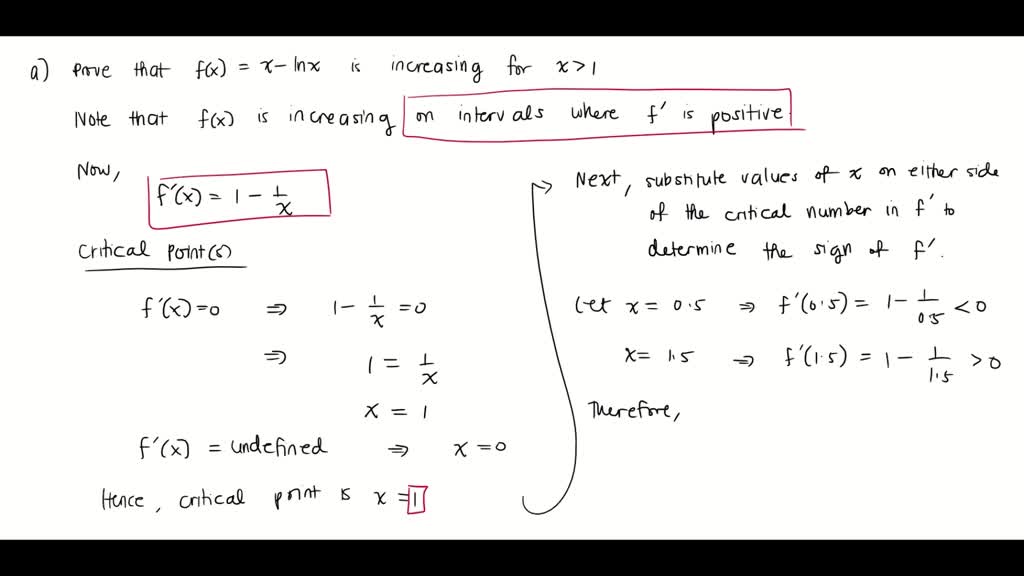 a) Prove that f(x) = x - ln x is increasing for x > 1
Note that f(x) is increasing on intervals where f' is positive
Now,
f'(x) = 1 - 1/x
Critical point(s)
f'(x) = 0 ⇒ 1 - 1/x = 0
⇒ 1 = 1/x
x = 1
f'(x) = undefined ⇒ x = 0
Hence, critical point is x = 1
Next, substitute values of x on either side
of the critical number in f' to
determine the sign of f'.
Let x = 0.5 ⇒ f'(0.5) = 1 - 1/0.5 < 0
x = 1.5 ⇒ f'(1.5) = 1 - 1/1.5 > 0
Therefore,